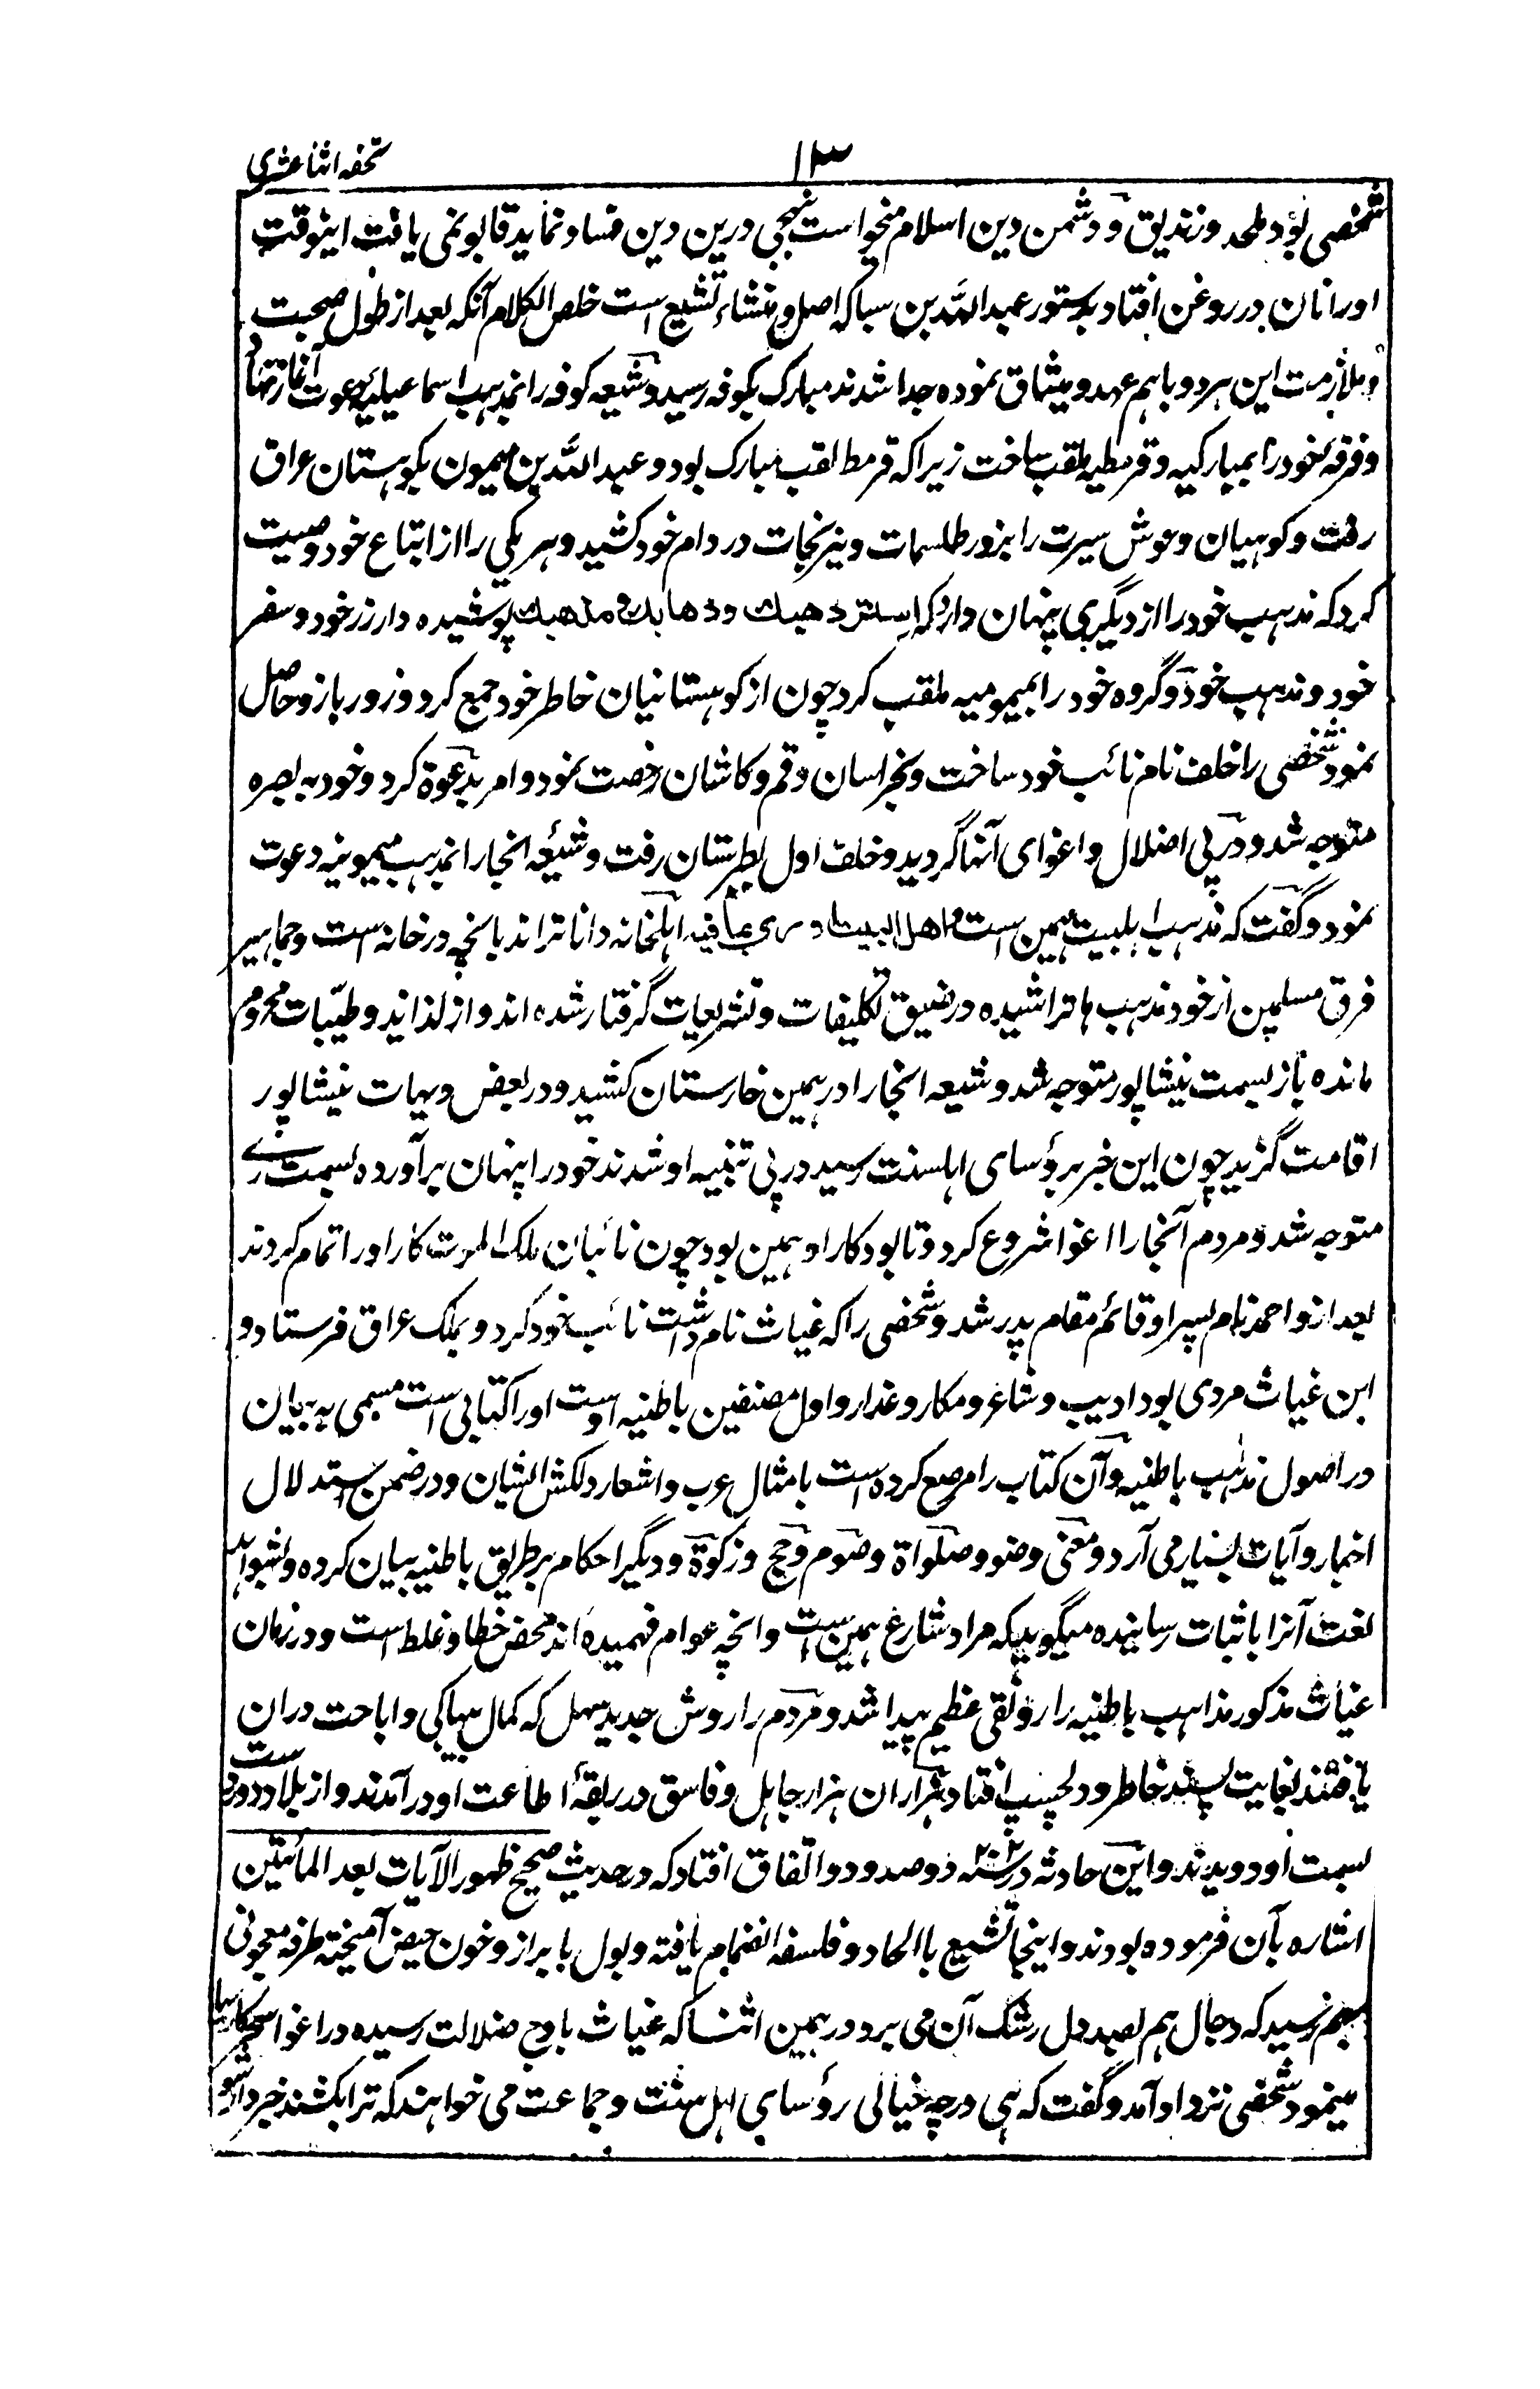 تحفه اثنا عشری
۱۳
شخصی بود ملحد و زندیق و دشمن دین اسلام میخواست بنهجی درین دین فساد نماید قابو نمی یافت اینوقت
او را نان در روغن افتاد بدستور عبد الله بن سبا که اصل و منشاء تشیع است خلص الکلام آنکه بعد از طول صحبت
و ملازمت این هر دو با هم عهد و میثاق نموده جدا شدند مبارک بکوفه رسید و شیعه کوفه را بمذهب اسماعیلیه دعوت آغاز نهاد
و فرقه خود را بمبارکیه و قرمطیه ملقب ساخت زیرا که قرمط لقب مبارک بود و عبد الله بن میمون بکوهستان عراق
رفت و کوهیان وحوش سیرت را بزور طلسمات و نیرنجات در دام خود کشید و هر یکی را از اتباع خود وصیت
کرد که مذهب خود را از دیگری پنهان دارد که استر ذهبك وذهابك ومذهبك پوشیده دار زر خود و سفر
خود و مذهب خود و گروه خود را بمیمونیه ملقب کرد چون از کوهستانیان خاطر خود جمع کرد و زور بازو حاصل
نمود شخصی را خلف نام نائب خود ساخت و بخراسان و قم و کاشان رخصت نمود و امر بدعوة کرد و خود به بصره
متوجه شد و در پی اضلال و اغوای آنها گردید و خلف اول بطبرستان رفت و شیعه انجا را بمذهب میمونیه دعوت
نمود و گفت که مذهب اهلبیت همین است و اهل البیت ادری بما فیه اهلخانه داناتراند بانچه در خانه است و جماهیر
فرق مسلمین از خود مذهب ها تراشیده در ضیق تکلیفات و تشریعات گرفتار شده اند و از لذائذ و طیبات محروم
مانده باز بسمت نیشاپور متوجه شد و شیعه انجا را در همین خارستان کشید و در بعض دیهات نیشاپور
اقامت گزید چون این خبر برؤسای اهلسنت رسید در پی تنبیه او شدند خود را پنهان برآورده بسمت رے
متوجه شد و مردم آنجا را اغوا شروع کرد و تا بود کار او همین بود چون نائبان ملک الموت کار او را تمام کردند
بعد ازو احمد نام پسر او قائم مقام پدر شد و شخصی را که غیاث نام داشت نائب خود کرد و بملک عراق فرستاد و
این غیاث مردی بود ادیب و شاعر و مکار و غدار و اول مصنفین باطنیه اوست او را کتابی است مسمی به بیان
در اصول مذهب باطنیه و آن کتاب را مرصع کرده است بامثال عرب و اشعار دلکش ایشان و در ضمن استدلال
اخبار و آیات بسیار می آرد و معنی وضو و صلواة و صوم و حج و زکوة و دیگر احکام بر طریق باطنیه بیان کرده و بشواهد
لغت آنرا باثبات رسانیده میگوید که مراد شارع همین است و انچه عوام فهمیده اند محض خطا و غلط است و در زمان
غیاث مذکور مذاهب باطنیه را رونقی عظیم پیدا شد و مردم را روش جدید سهل که کمال بیباکی و اباحت دران
یافتند بغایت پسند خاطر و دلچسپ افتاد هزاران هزار جاهل و فاسق در ربقهٔ اطاعت او درآمدند و از بلاد دوردست
بسمت او دویدند و این حادثه در سنه ۲۰۲ دوصد و دو اتفاق افتاد که در حدیث صحیح ظهور الآیات بعد المأتین
اشاره بآن فرموده بودند و اینجا تشیع با الحاد و فلسفه انضمام یافته و بول با براز و خون حیض آمیخته طرفه معجونی
بهم رسید که دجال هم بصد دل رشک آن می برد در همین اثنا که غیاث باوج ضلالت رسیده در اغوا سحکاریها
مینمود شخصی نزد او آمد و گفت که هی در چه خیالی رؤسای اهل سنت و جماعت می خواهند که ترا بکشند خبردار شو